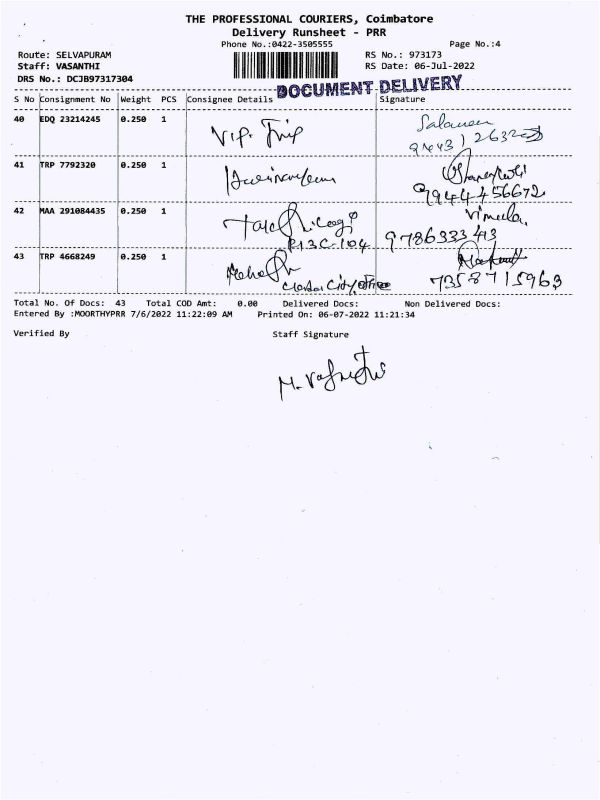 THE PROFESSIONAL COURIERS, Coimbatore
Delivery Runsheet - PRR
Phone No.:0422-3505555 Page No.:4
Route: SELVAPURAM RS No.: 973173
Staff: VASANTHI RS Date: 06-Jul-2022
DRS No.: DCJB97317304
DOCUMENT DELIVERY
S No Consignment No Weight PCS Consignee Details Signature
40 EDQ 23214245 0.250 1 V.I.P.
41 TRP 7792320 0.250 1
9944456672
42 MAA 291084435 0.250 1 Vimala
P13C-104 9786333413
43 TRP 4668249 0.250 1
7358715963
Total No. Of Docs: 43 Total COD Amt: 0.00 Delivered Docs: Non Delivered Docs:
Entered By :MOORTHYPRR 7/6/2022 11:22:09 AM Printed On: 06-07-2022 11:21:34
Verified By Staff Signature